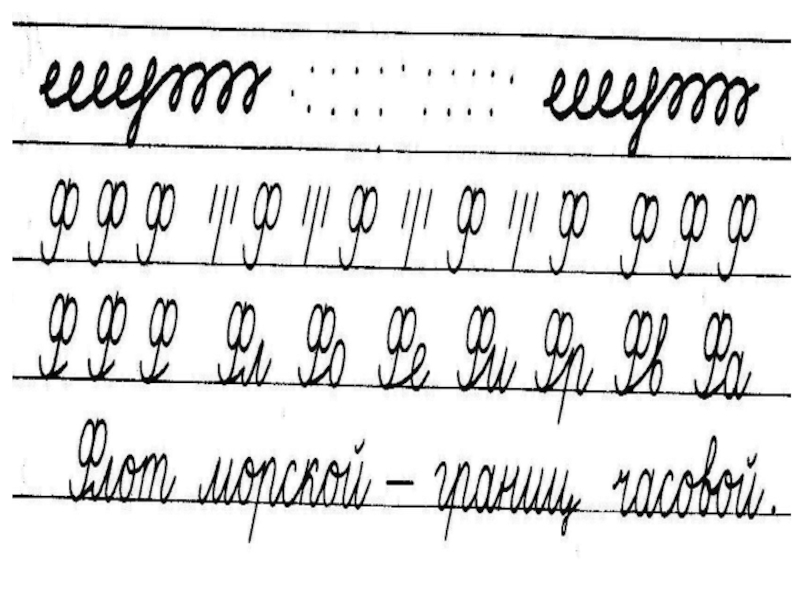 ф ф ф ф ф ф ф ф ф ф
Ф Ф Ф Фл Фо Фе Фи Фр Фв Фа
Флот морской – границ часовой.